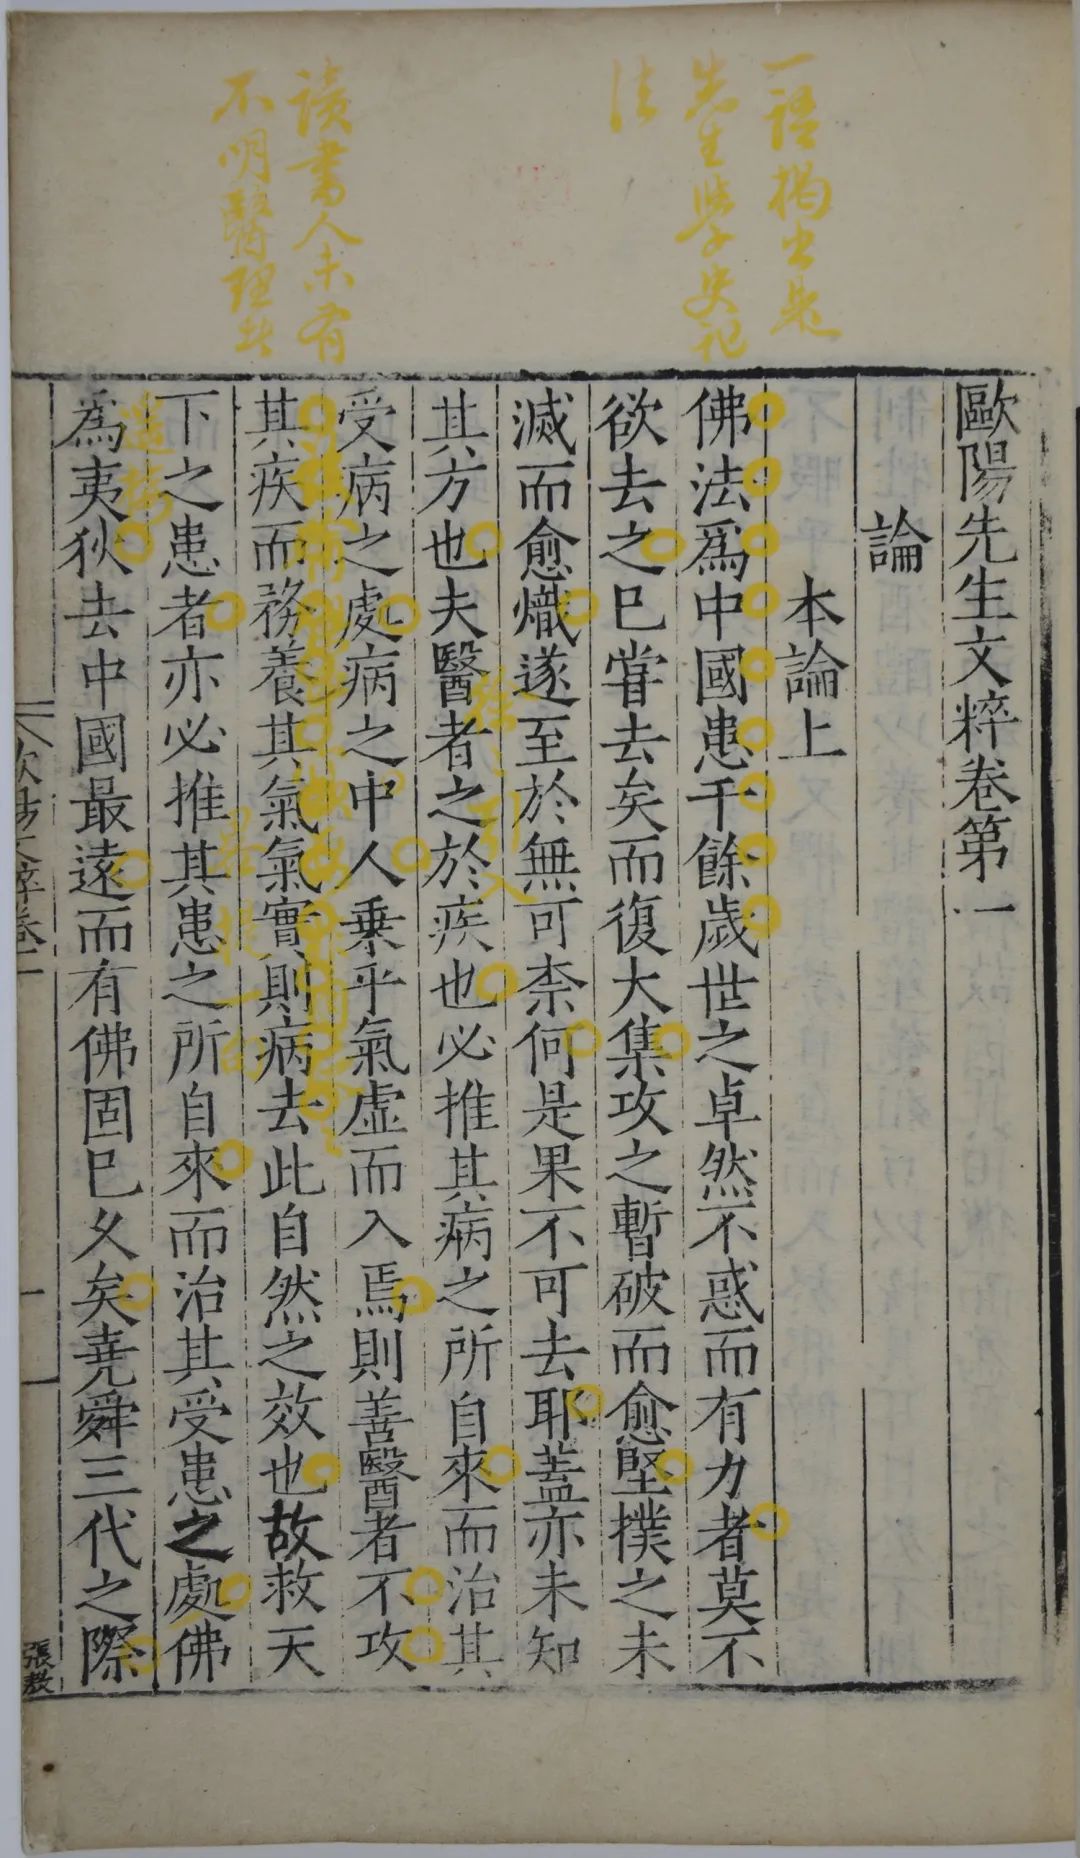 一語揭出是
先生學史記
法
讀書人未有
不明醫理者
歐陽先生文粹卷第一
論
本論上
佛法爲中國患千餘歲世之卓然不惑而有力者莫不
欲去之已甞去矣而復大集攻之暫破而愈堅撲之未
滅而愈熾遂至於無可柰何是果不可去耶蓋亦未知
其方也夫醫者之於疾也必推其病之所自來而治其
受病之處病之中人乗乎氣虛而入焉則善醫者不攻
其疾而務養其氣氣實則病去此自然之效也故救天
下之患者亦必推其患之所自來而治其受患之處佛
為夷狄去中國最遠而有佛固已久矣堯舜三代之際
張敖